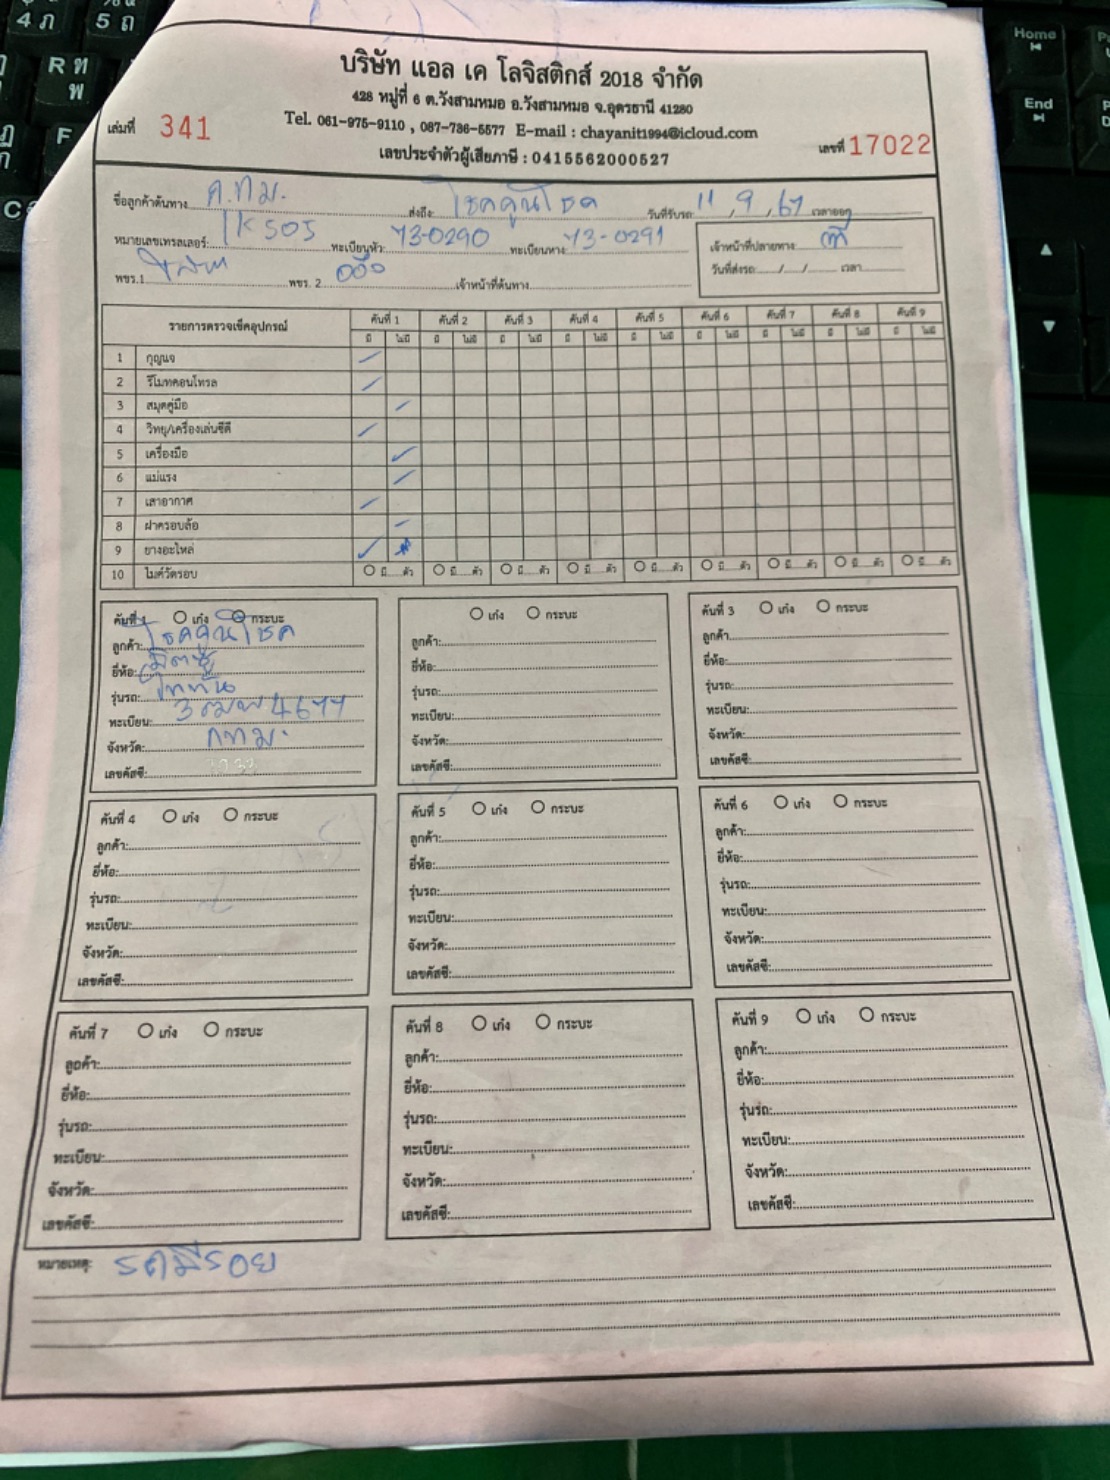 บริษัท แอล เค โลจิสติกส์ 2018 จำกัด
428 หมู่ที่ 6 ต.วังสามหมอ อ.วังสามหมอ จ.อุดรธานี 41280
Tel. 061-975-9110 , 087-736-5577 E-mail : chayanit1994@icloud.com
เล่มที่ 341 เลขที่ 17022
เลขประจำตัวผู้เสียภาษี : 0415562000527
ชื่อลูกค้าต้นทาง ก.ท.ม. ส่งถึง โชคคูนโชค วันที่รับรถ 11 , 9 , 67 เวลาออก
หมายเลขเทรลเลอร์: LK505 ทะเบียนหัว: 73-0290 ทะเบียนหาง: 73-0291 เจ้าหน้าที่ปลายทาง
พขร.1 พขร. 2 เจ้าหน้าที่ต้นทาง วันที่ส่งรถ / / เวลา
รายการตรวจเช็คอุปกรณ์ คันที่ 1 คันที่ 2 คันที่ 3 คันที่ 4 คันที่ 5 คันที่ 6 คันที่ 7 คันที่ 8 คันที่ 9
มี ไม่มี มี ไม่มี มี ไม่มี มี ไม่มี มี ไม่มี มี ไม่มี มี ไม่มี มี ไม่มี มี ไม่มี
1 กุญแจ
2 รีโมทคอนโทรล
3 สมุดคู่มือ
4 วิทยุ/เครื่องเล่นซีดี
5 เครื่องมือ
6 แม่แรง
7 เสาอากาศ
8 ฝาครอบล้อ
9 ยางอะไหล่
10 ไมค์วัดรอบ มี ตัว มี ตัว มี ตัว มี ตัว มี ตัว มี ตัว มี ตัว มี ตัว มี ตัว
คันที่ 1 เก๋ง กระบะ
ลูกค้า: โชคคูนโชค
ยี่ห้อ: มิตซู
รุ่นรถ: ไททัน
ทะเบียน: 3ฒฬ 4677
จังหวัด: กทม.
เลขคัสซี:
เก๋ง กระบะ
ลูกค้า:
ยี่ห้อ:
รุ่นรถ:
ทะเบียน:
จังหวัด:
เลขคัสซี:
คันที่ 3 เก๋ง กระบะ
ลูกค้า
ยี่ห้อ:
รุ่นรถ:
ทะเบียน:
จังหวัด:
เลขคัสซี:
คันที่ 4 เก๋ง กระบะ
ลูกค้า:
ยี่ห้อ:
รุ่นรถ:
ทะเบียน:
จังหวัด:
เลขคัสซี:
คันที่ 5 เก๋ง กระบะ
ลูกค้า:
ยี่ห้อ:
รุ่นรถ:
ทะเบียน:
จังหวัด:
เลขคัสซี:
คันที่ 6 เก๋ง กระบะ
ลูกค้า:
ยี่ห้อ:
รุ่นรถ:
ทะเบียน:
จังหวัด:
เลขคัสซี:
คันที่ 7 เก๋ง กระบะ
ลูกค้า:
ยี่ห้อ:
รุ่นรถ:
ทะเบียน:
จังหวัด:
เลขคัสซี:
คันที่ 8 เก๋ง กระบะ
ลูกค้า:
ยี่ห้อ:
รุ่นรถ:
ทะเบียน:
จังหวัด:
เลขคัสซี:
คันที่ 9 เก๋ง กระบะ
ลูกค้า:
ยี่ห้อ:
รุ่นรถ:
ทะเบียน:
จังหวัด:
เลขคัสซี:
หมายเหตุ: รถมีรอย
Home
End